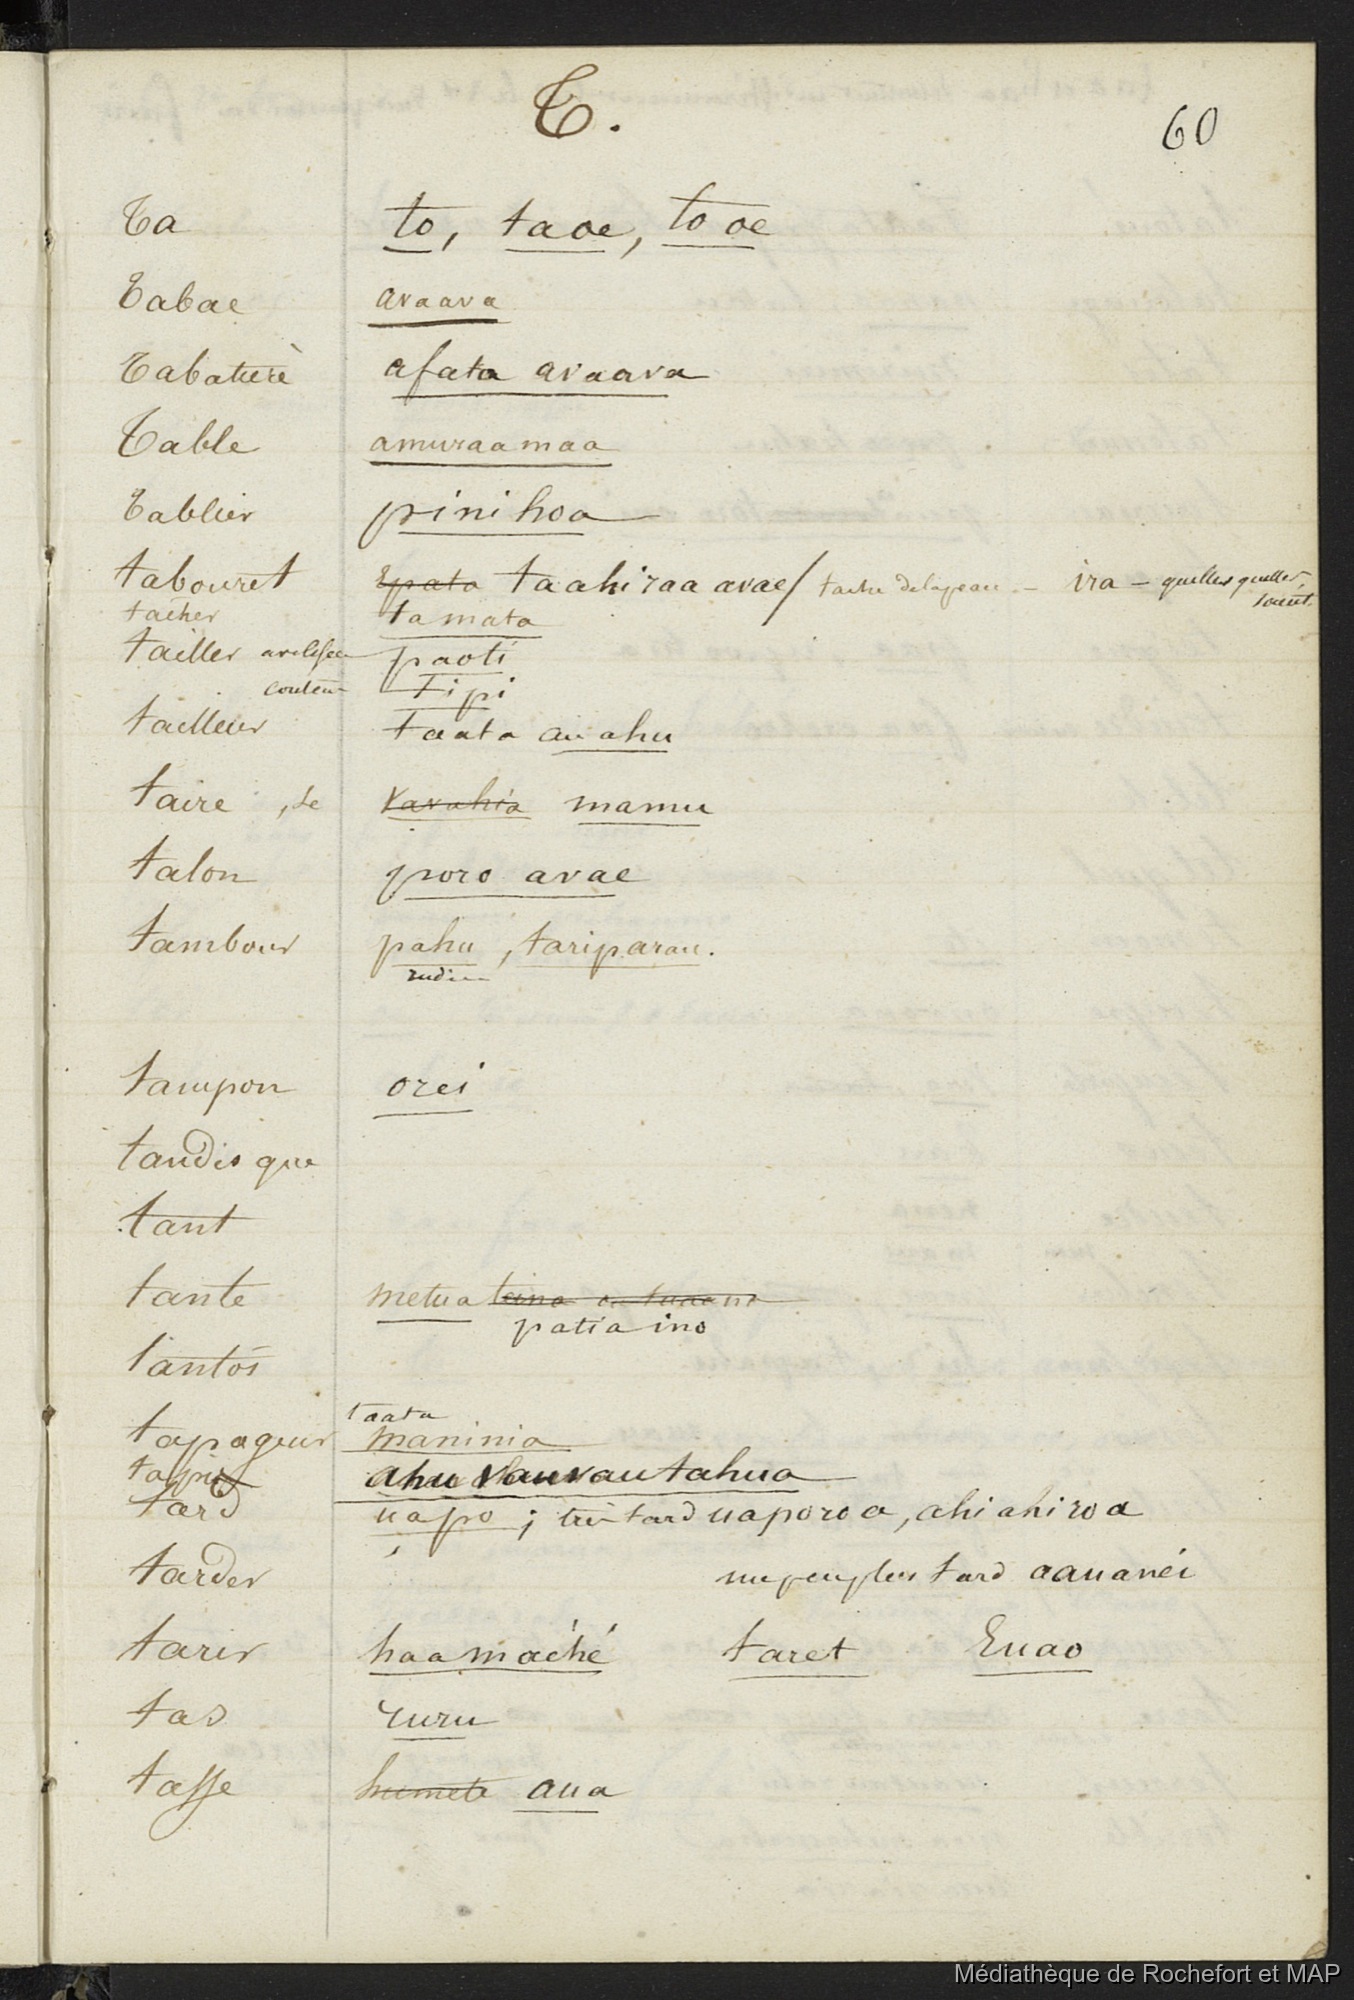 T.
60
Ta to, ta oe, to oe
Tabac avaava
Tabatière afata avaava
Table amuraamaa
Tablier pinihoa
tabouret taahiraa avae / tache de la peau - ira - quelles quelles
soient.
tacher tamata
tailler paoti
couteau tipi
tailleur taata au ahu
taire, se vavahia mamu
talon poro avae
tambour pahu, tariparau.
tampon orei
tandis que
tant
tante metua teina
patia ino
tantôs
taata
tapageur maninia
tapis ahu tahua
tard uapo; très tard uaporoa, ahiahiroa
tarder un peu plus tard aauanéi
tarir haamaéhé taret Euao
tas ruru
tasse humete aua
Médiathèque de Rochefort et MAP